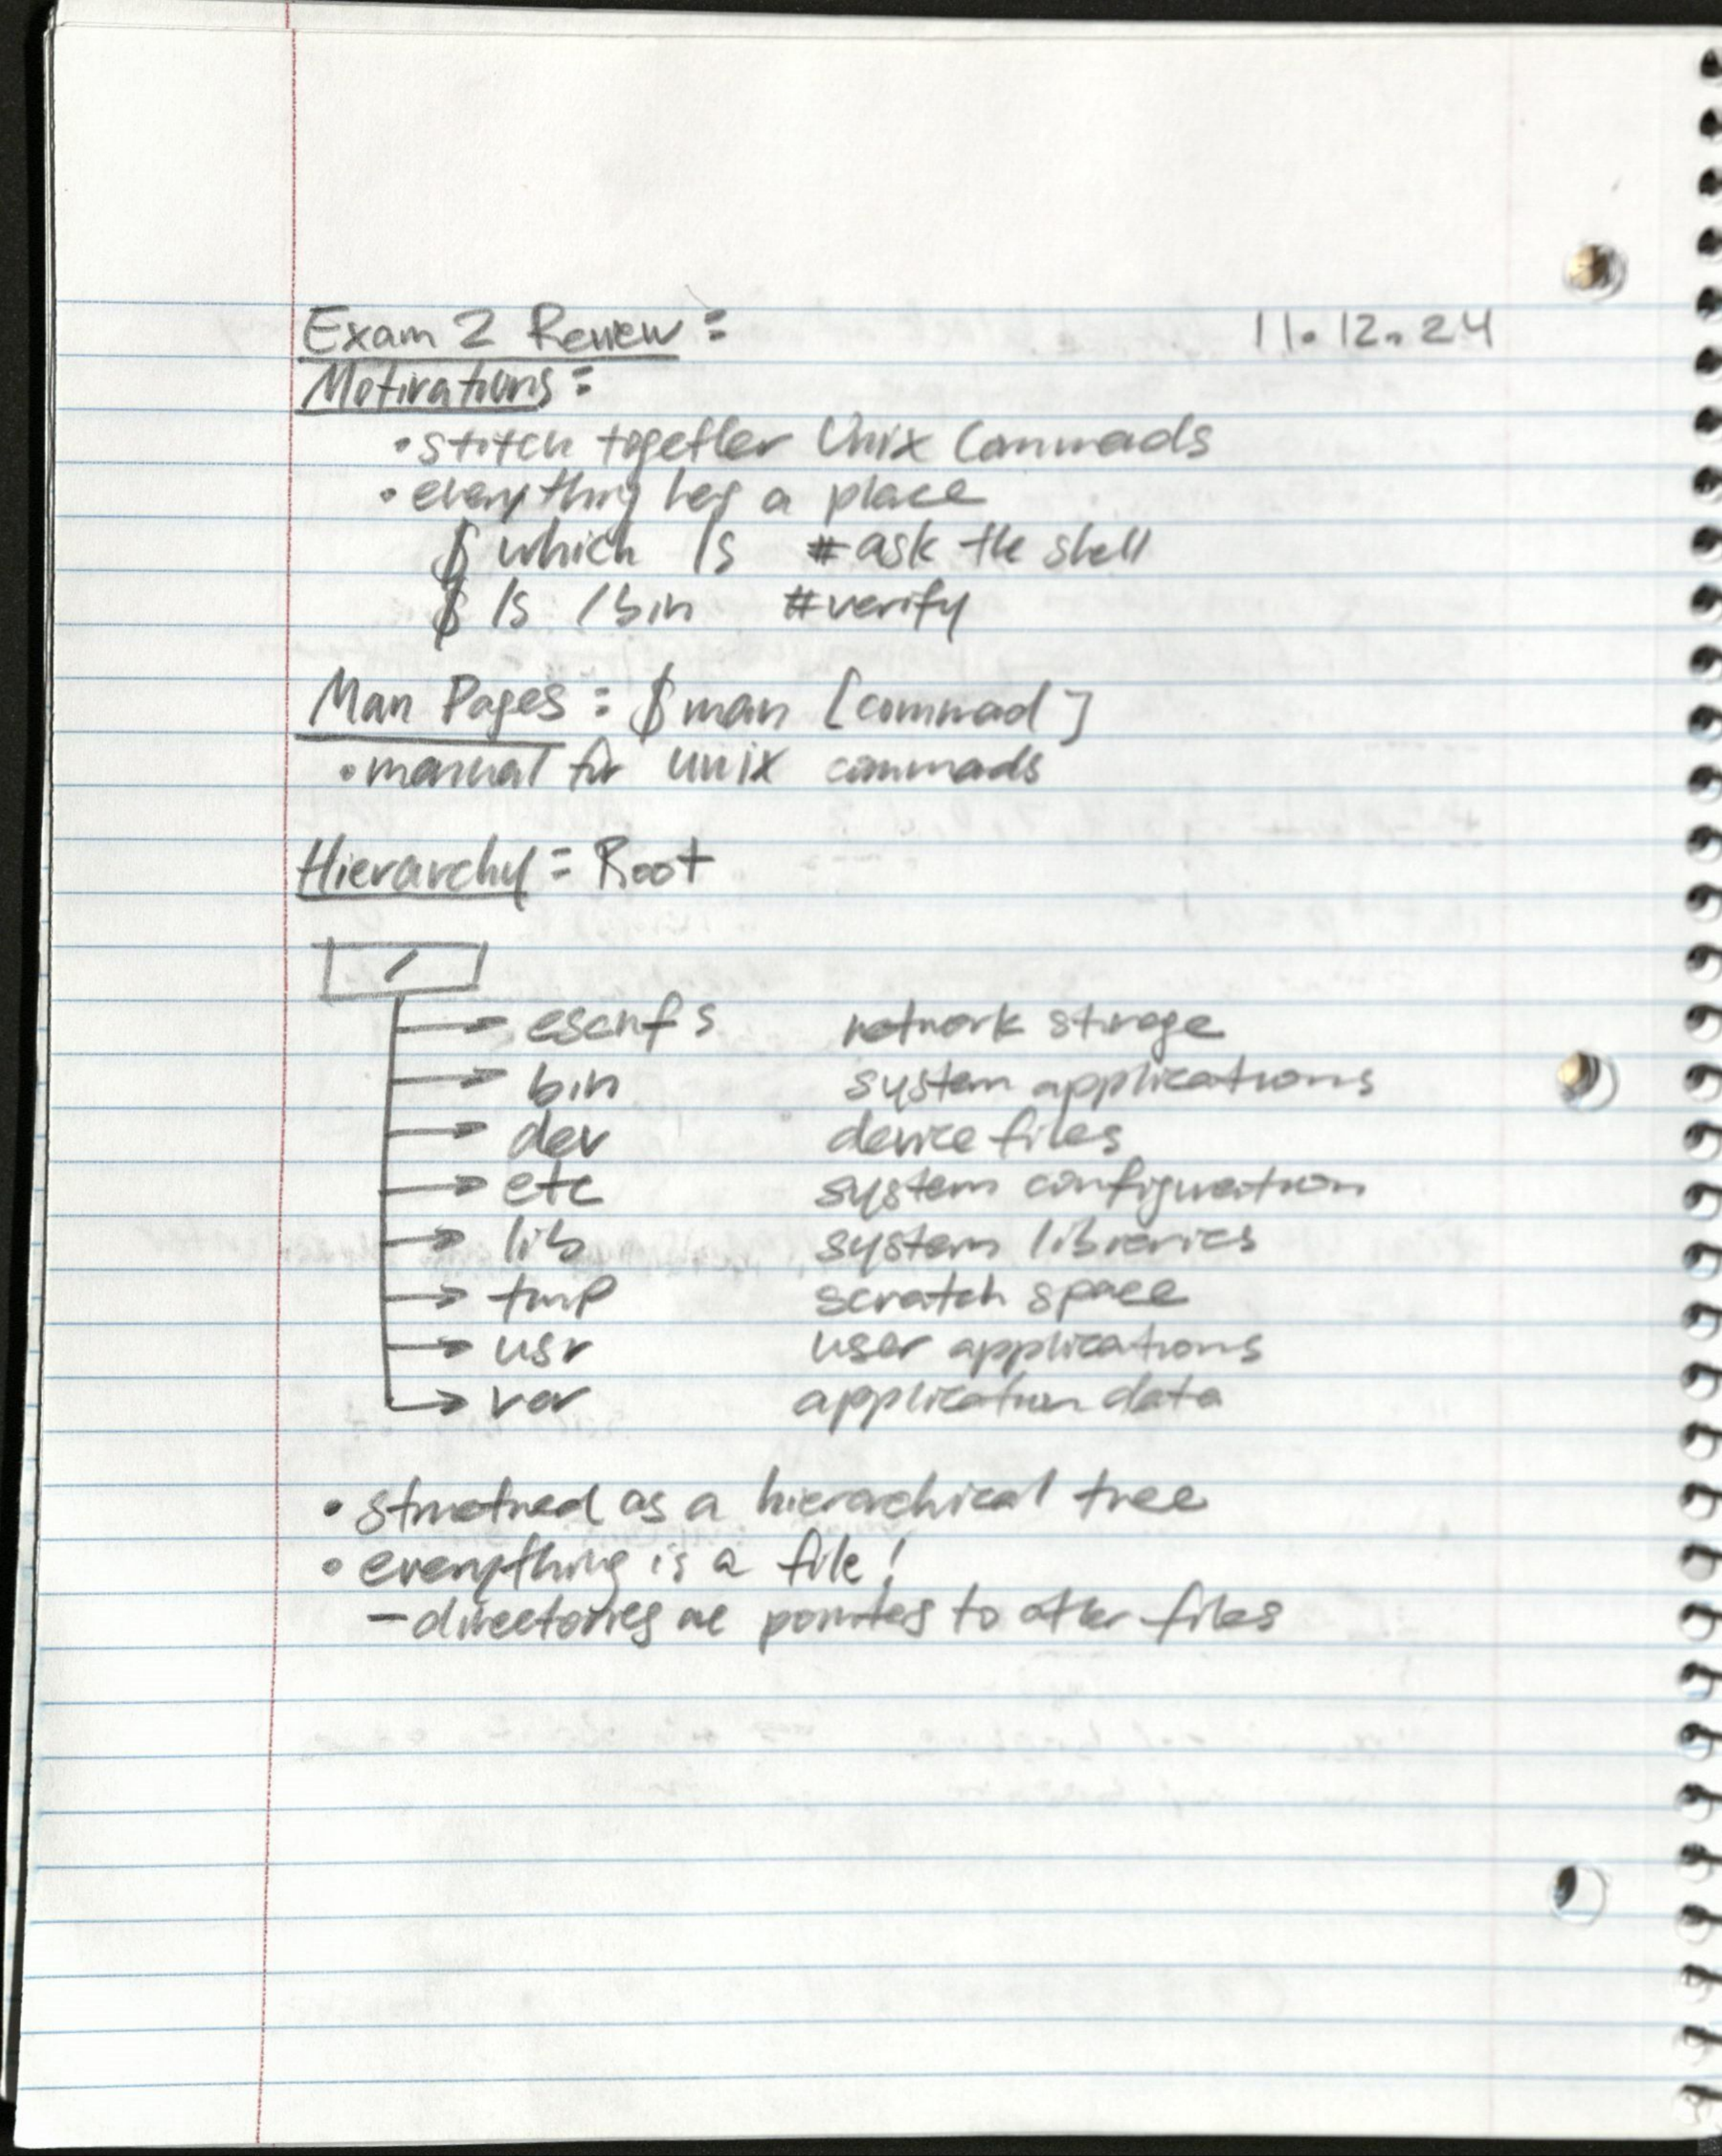 Exam 2 Review: 11.12.24
Motivations:
• stitch together Unix Commads
• everything has a place
$ which ls # ask the shell
$ ls /bin # verify
Man Pages: $ man [commad]
• manual for unix commads
Hierarchy: Root
/
→ escnfs network storage
→ bin system applications
→ dev device files
→ etc system configuration
→ lib system libraries
→ tmp scratch space
→ usr user applications
→ var application data
• structured as a hierarchical tree
• everything is a file!
- directories are pointers to other files